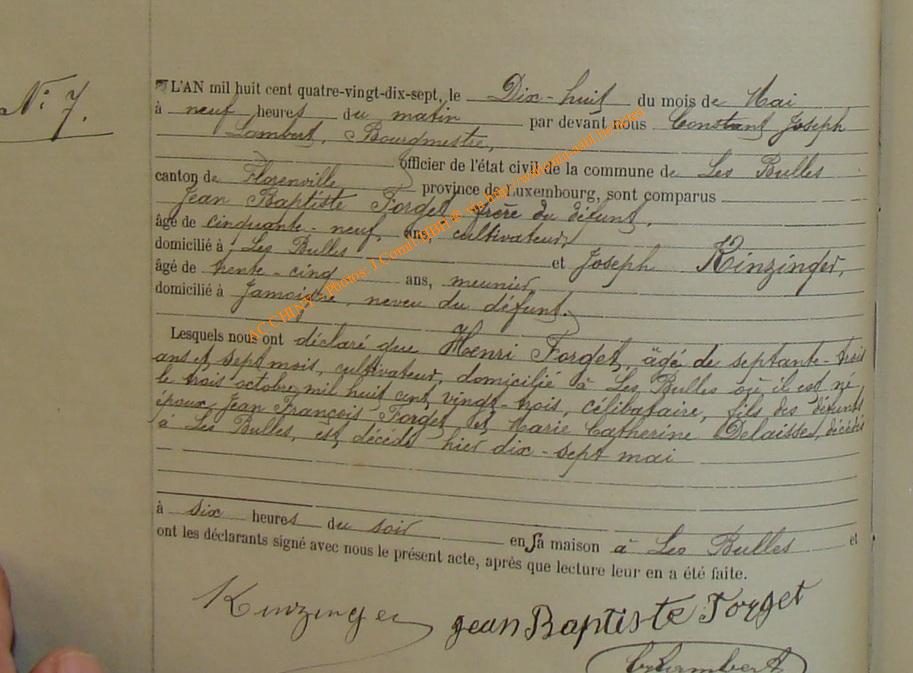 N° 7.
L'AN mil huit cent quatre-vingt-dix-sept, le Dix-huit du mois de Mai
à neuf heures du matin par devant nous Constant Joseph
Lambert, Bourgmestre,
Officier de l'état civil de la commune de Les Bulles
canton de Florenville province de Luxembourg, sont comparus
Jean Baptiste Forget, frère du défunt,
âgé de cinquante-neuf ans, cultivateur,
domicilié à Les Bulles et Joseph Kinzinger,
âgé de trente-cinq ans, meunier,
domicilié à Jamoigne, neveu du défunt.
Lesquels nous ont déclaré que Henri Forget, âgé de septante-trois
ans et sept mois, cultivateur, domicilié à Les Bulles où il est né
le trois octobre mil huit cent vingt-trois, célibataire, fils des défunts
époux Jean François Forget et Marie Catherine Delaisse, décédés
à Les Bulles, est décédé hier dix-sept mai
à six heures du soir en sa maison à Les Bulles et
ont les déclarants signé avec nous le présent acte, après que lecture leur en a été faite.
Kinzinger Jean Baptiste Forget
Lambert